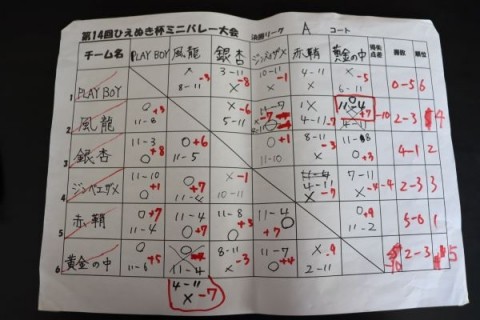 第14回ひえぬき杯ミニバレー大会 決勝リーグ A コート
チーム名 PLAY BOY 風龍 銀杏 ジンベエザメ 赤鞘 黄金の中 得失点差 勝敗 順位
1 PLAY BOY × -3 8-11 3-11 × -8 10-11 × -1 4-11 × -7 × -5 6-11 0-5 6
2 風龍 0 +3 11-8 × -6 5-11 -7 4-11 -7 11-4 +7 -10 2-3 4
3 銀杏 11-3 0 +8 0 +6 11-5 0 +1 11-10 8-11 × -3 11-8 0 +3 4-1 2
4 ジンベエザメ 11-10 0 +1 +7 × -1 4-11 × -7 7-11 × -4 -4 2-3 3
5 赤鞘 0 +7 11-4 11-4 0 +7 11-8 0 +3 11-4 0 +7 0 +9 11-2 5-0 1
6 黄金の中 0 +5 11-6 11-4 8-11 × -3 11-7 0 +4 × -9 2-11 2-3 5
4-11
× -7